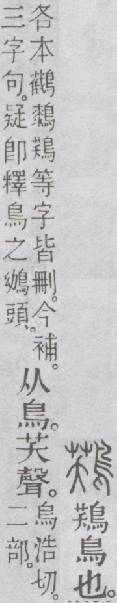 𪁾鳥也。
各本鸛𪁾等字皆刪。今補。
三字句。疑卽釋鳥之鴢頭。
从鳥。芺聲。
烏浩切。
二部。